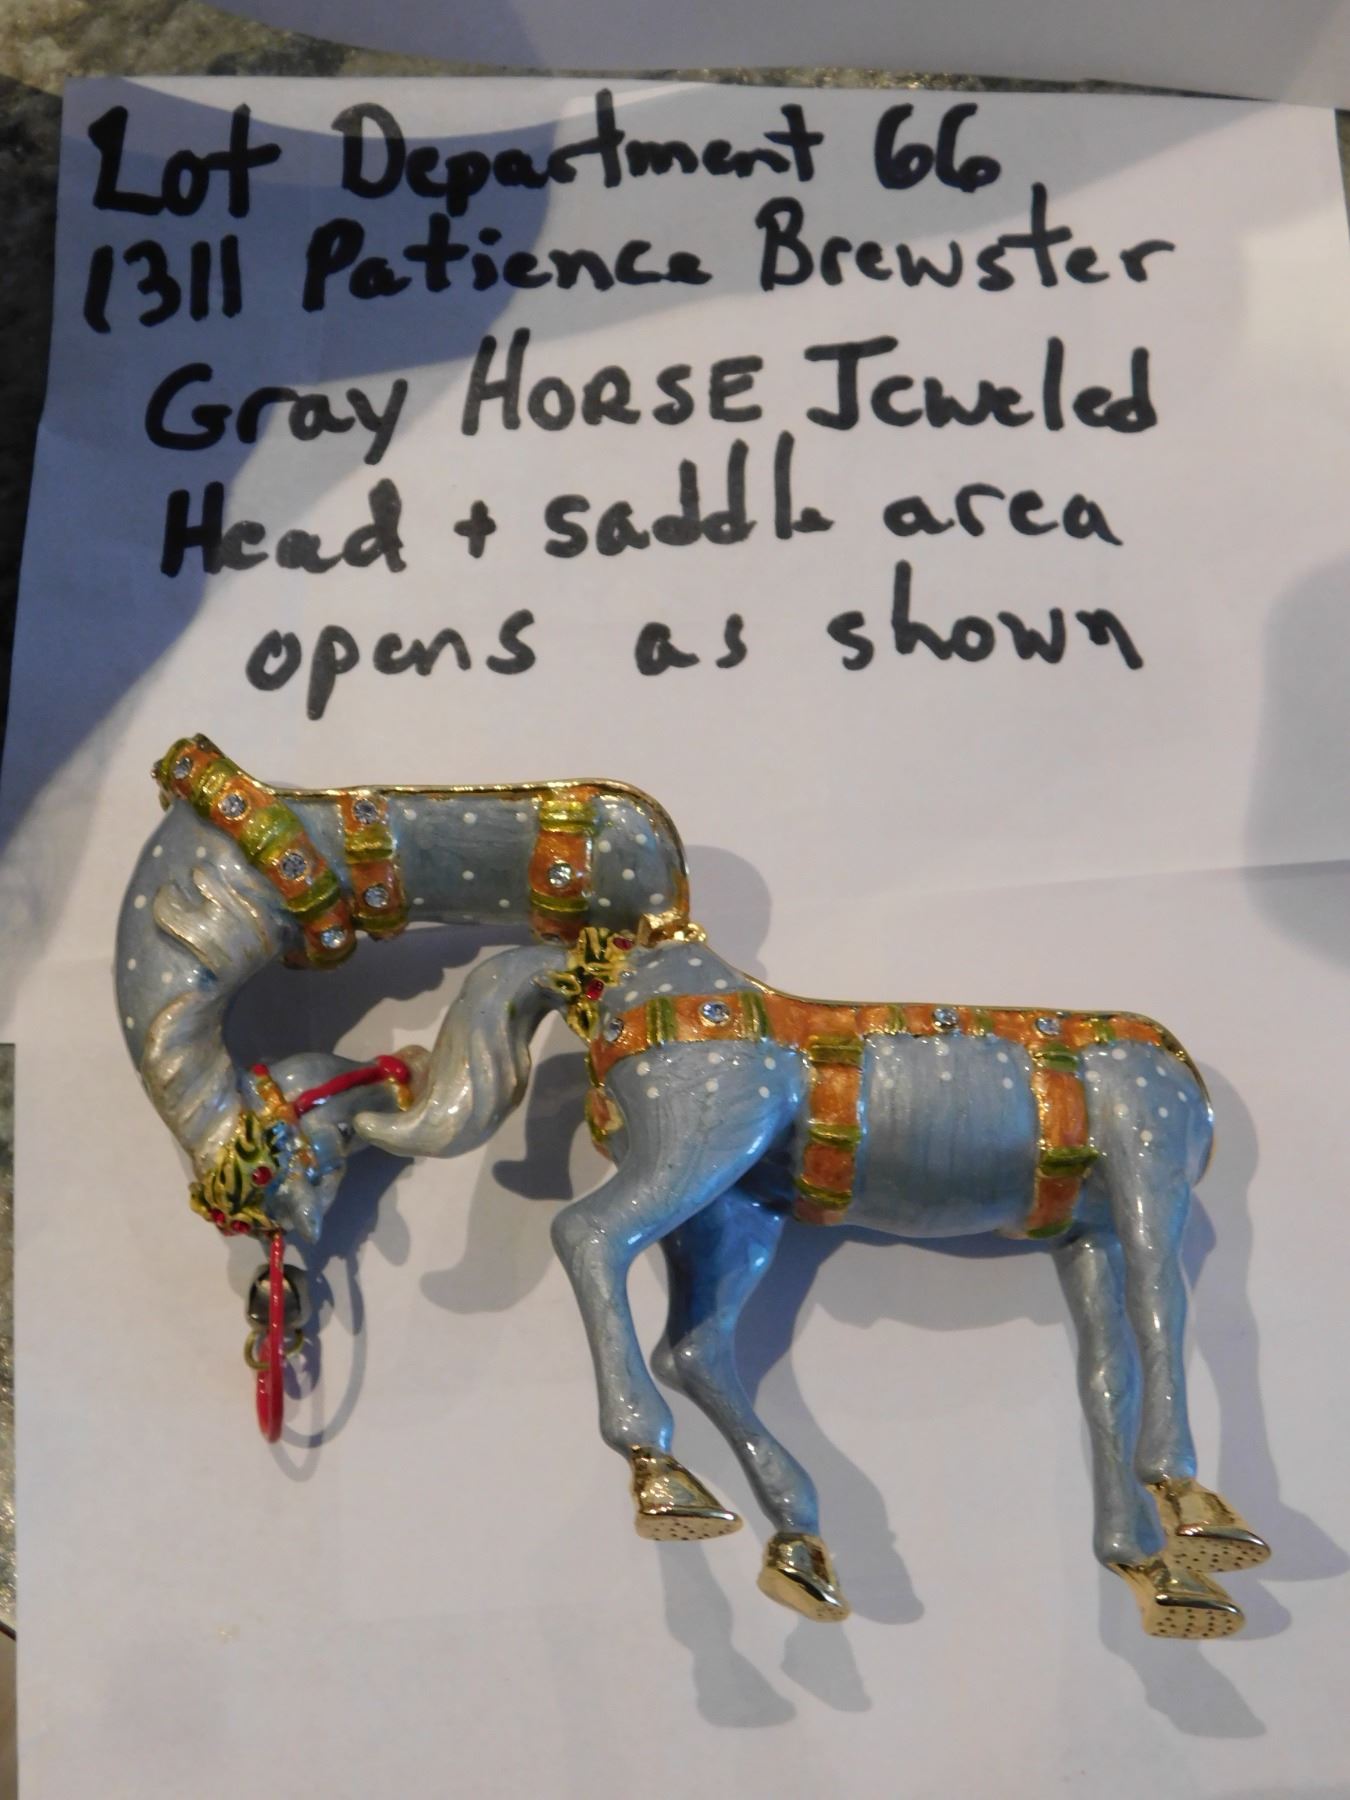 Lot Department 66
1311 Patience Brewster
Gray HORSE Jeweled
Head + saddle area
opens as shown